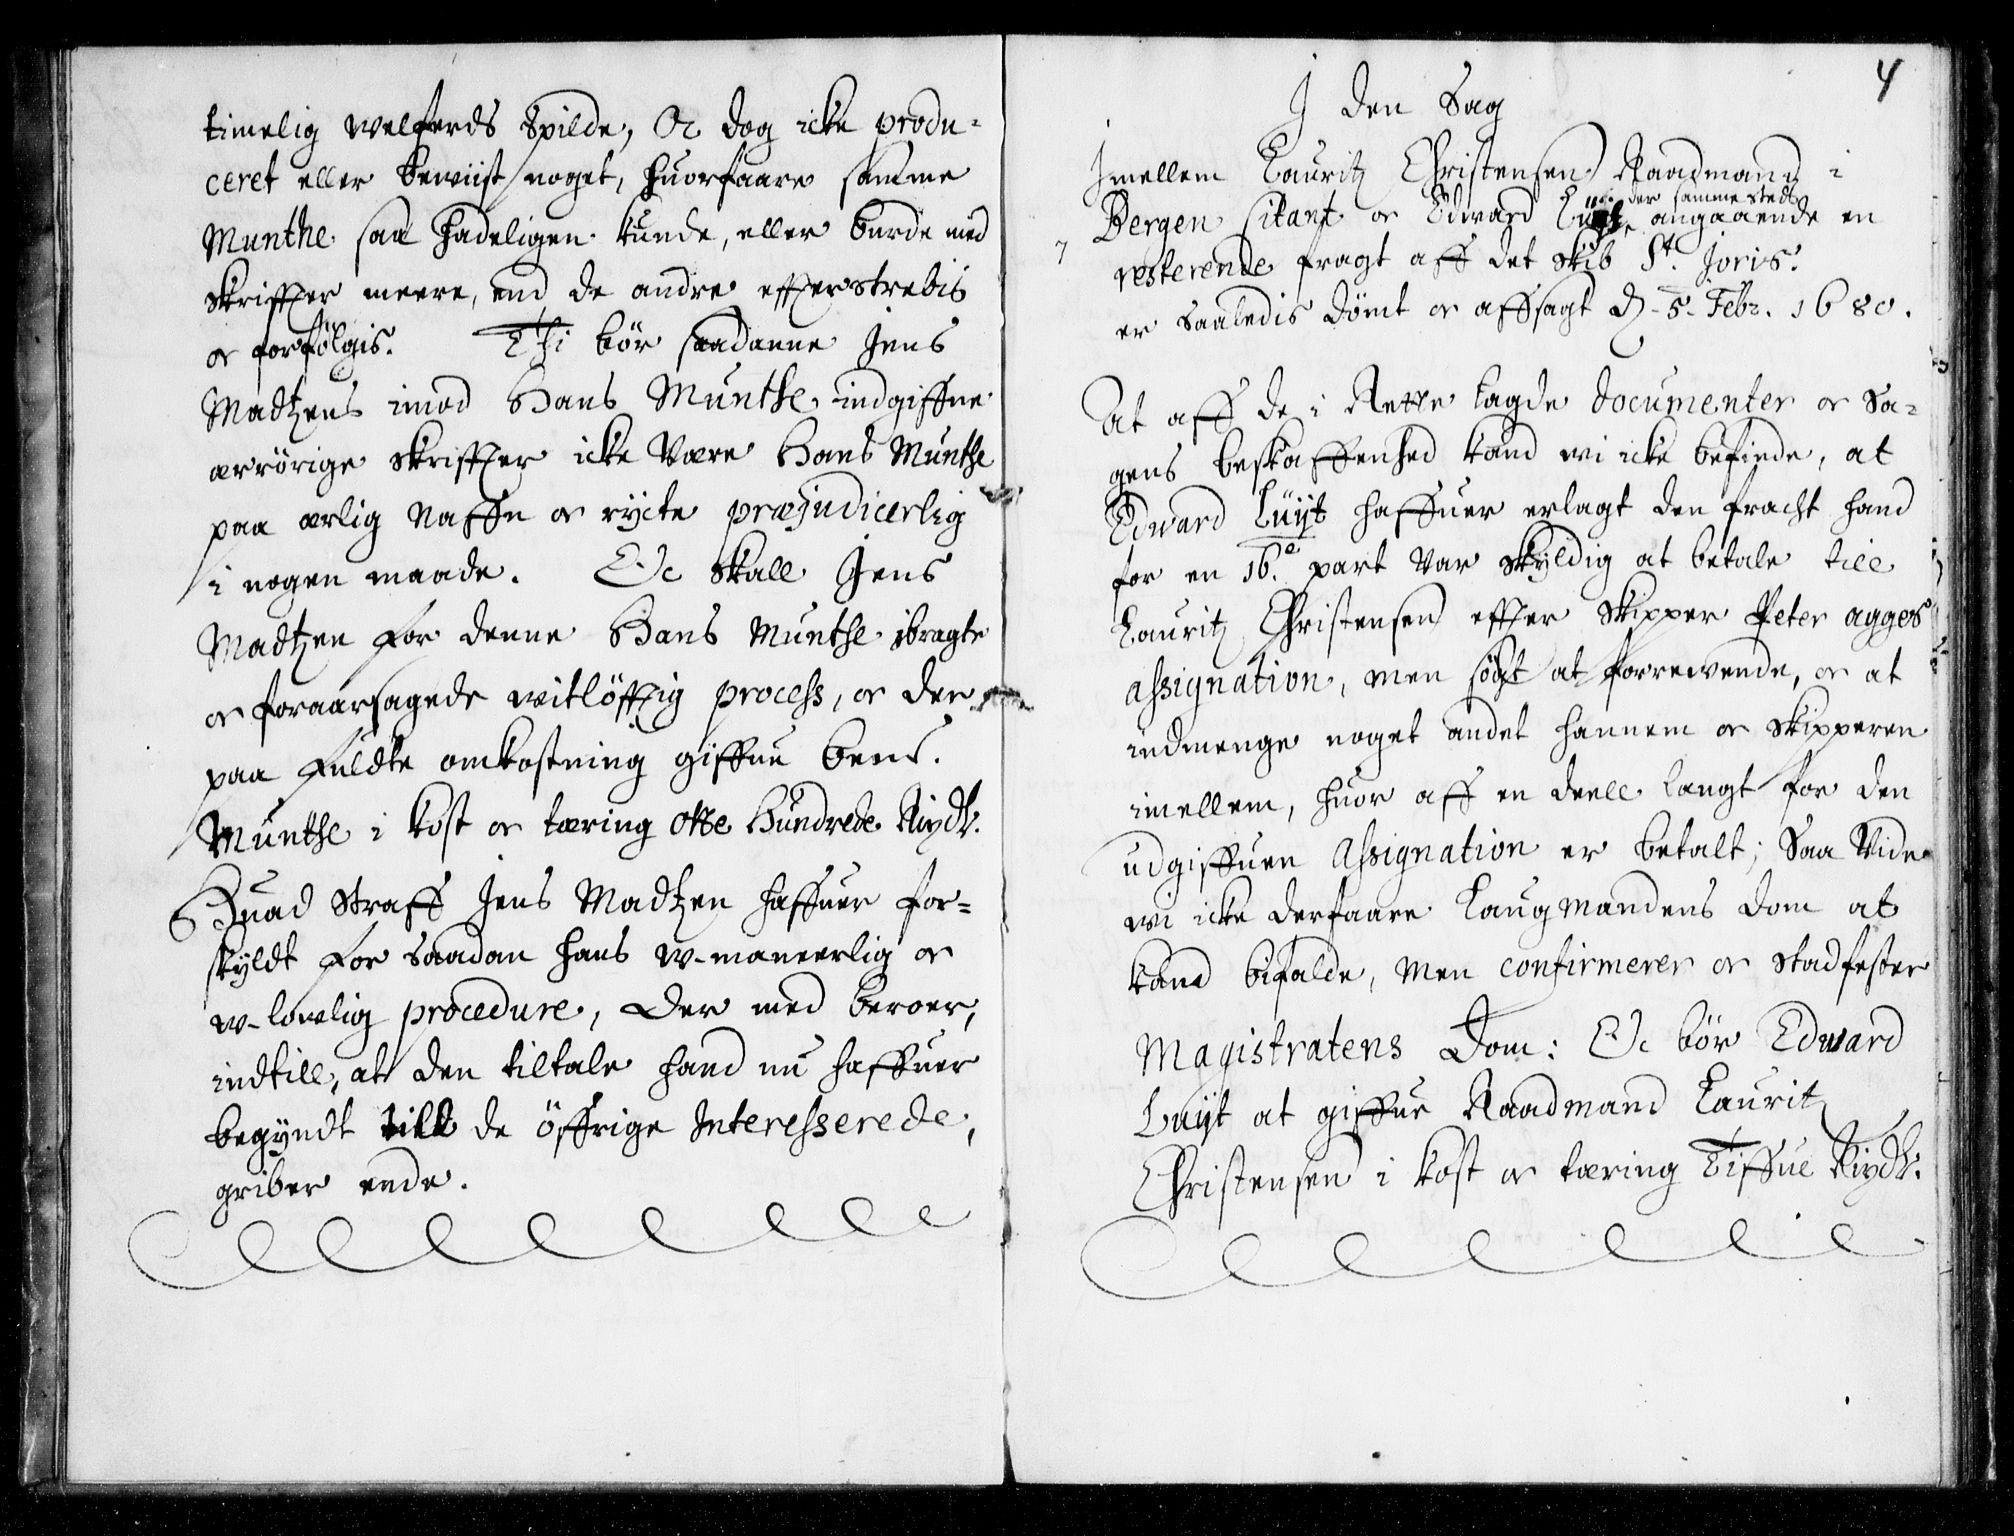 timelig welferds Spilde, Oc dog icke produ-
ceret eller bewiist noget, huorfaare samme
Munthe saa skadeligen kunde, eller burde med
skriffter meere, end de andre effterstrebis
oc forfölgis. Thi bör saadanne Jens
Madtzens imod Hans Munthe indgiffne
ærrörige skriffter icke være Hans Munthe
paa ærlig Naffn oc rycte præjudicerlig
i nogen maade. Oc skall Jens
Madtzen for denne Hans Munthe ibragte
oc foraarsagede witlöfftig process, oc der
paa fuldte omkostning giffue bem.te
Munthe i kost oc tæring otte Hundrede Rixdlr.
Huad Straff Jens Madtzen haffuer for-
skyldt for saadan hans w-maneerlig oc
w-lovelig procedure, der med beroer,
indtill, at den tiltale hand nu haffuer
begyndt till de öffrige Interesserede,
griber ende.
4
J den Sag
Jmellem Lauritz Christensen Raadmand i
der sammestedz
Bergen Citant oc Edward Luÿt angaaende en
7
resterende fragt aff det Skib St. Joris.
er saaledis dömt oc affsagt d. 5. Febr. 1680.
At aff de i Rette lagde documenter oc Sa-
gens beskaffenhed kand wi icke befinde, at
Edward Lüÿt haffuer erlagt den fracht hand
for en 16.e part var skyldig at betale till
Lauritz Christensen effter Skipper Peter Agges
assignation, men sögt at forrewende, oc at
indmenge noget andet hannem oc Skipperen
imellem, huor aff en deell langt for den
udgiffuen Assignation er betalt; Saa Vide
wi icke derfaare Laugmandens dom at
kand bifalde, men confirmerer oc stadfester
Magistratens Dom: Oc bör Edward
Luÿt at giffue Raadmand Lauritz
Christensen i kost oc tæring Tiffue Rixdlr.